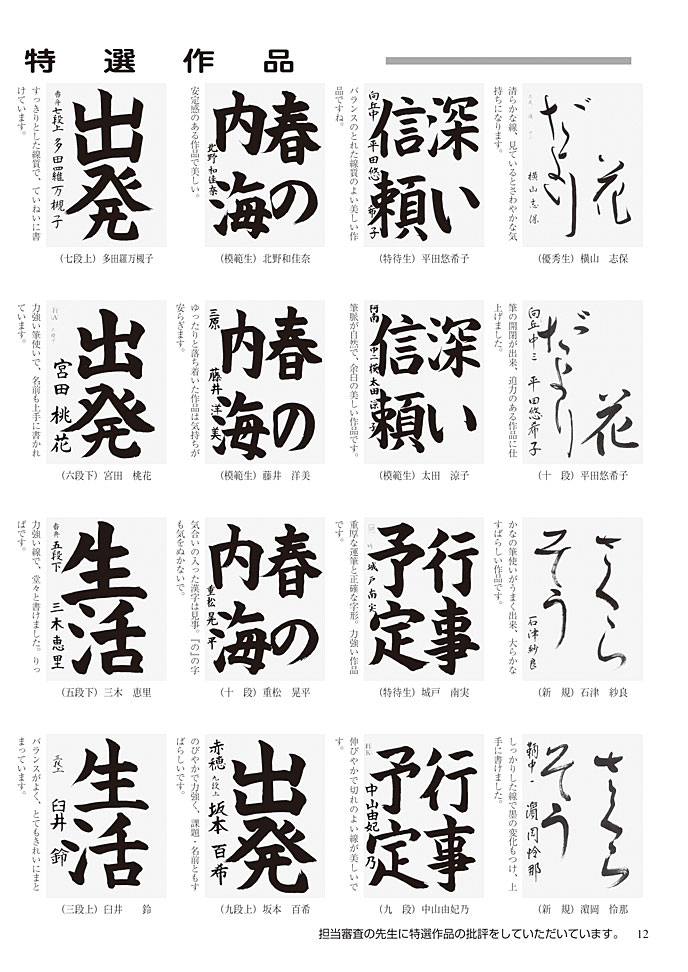 特選作品
花
だより
横山志保
清らかな線、見ているとさわやかな気
持ちになります。
（優秀生）横山　志保
深い
信頼
向丘中　平田悠希子
バランスのとれた線質のよい美しい作
品ですね。
（特待生）平田悠希子
春の
内海
北野和佳奈
安定感のある作品で美しい。
（模範生）北野和佳奈
出発
七段上　多田羅万槻子
すっきりとした線質で、ていねいに書
けています。
（七段上）多田羅万槻子
花
だより
向丘中三　平田悠希子
筆の開閉が出来、迫力のある作品に仕
上げました。
（十　段）平田悠希子
深い
信頼
阿南　中二　模　太田涼子
筆脈が自然で、余白の美しい作品です。
（模範生）太田　涼子
春の
内海
三原　藤井洋美
ゆったりと落ち着いた作品は気持ちが
安らぎます。
（模範生）藤井　洋美
出発
宮田桃花
力強い筆使いで、名前も上手に書かれ
ています。
（六段下）宮田　桃花
さくら
そう
石津紗良
かなの筆使いがうまく出来、大らかな
すばらしい作品です。
（新　規）石津　紗良
行事
予定
城戸南実
重厚な運筆と正確な字形。力強い作品
です。
（特待生）城戸　南実
春の
内海
重松晃平
気合いの入った漢字は見事。『の』の字
も気をぬかないで。
（十　段）重松　晃平
生活
五段下　三木恵里
力強い線で、堂々と書けました。りっ
ぱです。
（五段下）三木　恵里
さくら
そう
鞆中一　濵岡怜那
しっかりした線で墨の変化もつけ、上
手に書けました。
（新　規）濵岡　怜那
行事
予定
中山由妃乃
伸びやかで切れのよい線が美しいで
す。
（九　段）中山由妃乃
出発
赤穂　九段上　坂本百希
のびやかで力強く、課題・名前ともす
ばらしいです。
（九段上）坂本　百希
生活
三段上　臼井鈴
バランスがよく、とてもきれいにまと
まっています。
（三段上）臼井　　鈴
担当審査の先生に特選作品の批評をしていただいています。　12